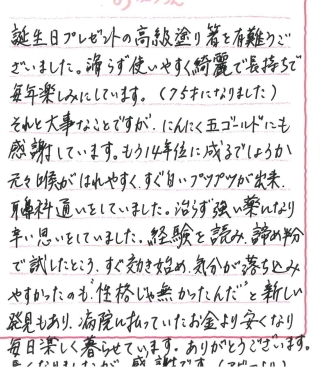 誕生日プレゼントの高級塗り箸を有難うご
ざいました。滑らず使いやすく綺麗で長持ちで
毎年楽しみにしています。(75才になりました)
それと大事なことですが、にんにく五ゴールドにも
感謝しています。もう14年位に成るでしょうか
元々喉がはれやすく、すぐ白いプツプツが出来、
耳鼻科通いをしていました。治らず強い薬になり
辛い思いをしていました。経験を読み、諦め半分
で試したところ、すぐ効き始め、気分が落ち込み
やすかったのも"性格じゃ無かったんだ"と新しい
発見もあり、病院に払っていたお金より安くなり
毎日楽しく暮らせています。ありがとうございます。